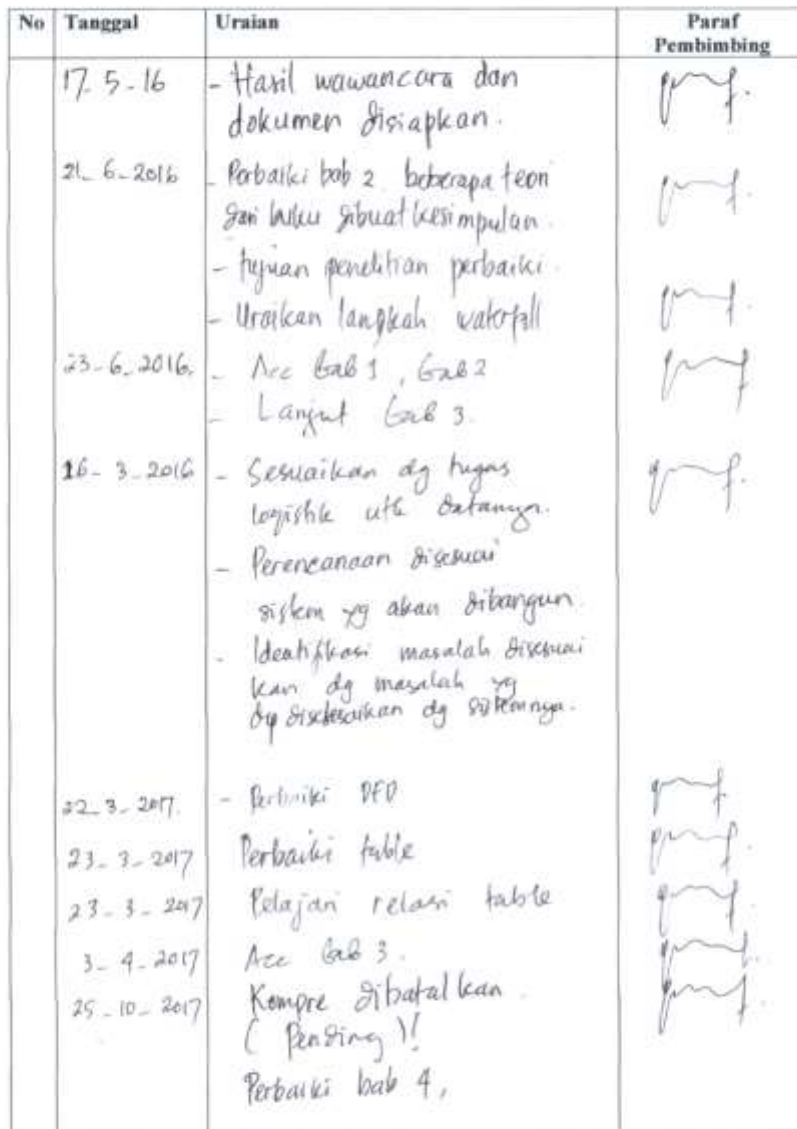 No Tanggal Uraian Paraf
Pembimbing
17-5-16 - Hasil wawancara dan
dokumen disiapkan.
21-6-2016 - Perbaiki bab 2 beberapa teori
dari buku dibuat kesimpulan.
- tujuan penelitian perbaiki.
- Uraikan langkah waterfall
23-6-2016. - Acc bab 1, bab 2
- Lanjut bab 3.
16-3-2016 - Sesuaikan dg tugas
logistik utk datanya.
- Perencanaan disesuai
sistem yg akan dibangun.
- Identifikasi masalah disesuai
kan dg masalah yg
dp diselesaikan dg sistemnya.
22-3-2017. - Perbaiki DFD
23-3-2017 Perbaiki table
23-3-2017 Pelajari relasi table
3-4-2017 Acc bab 3.
25-10-2017 Kompre dibatalkan
( Pending )!
Perbaiki bab 4,